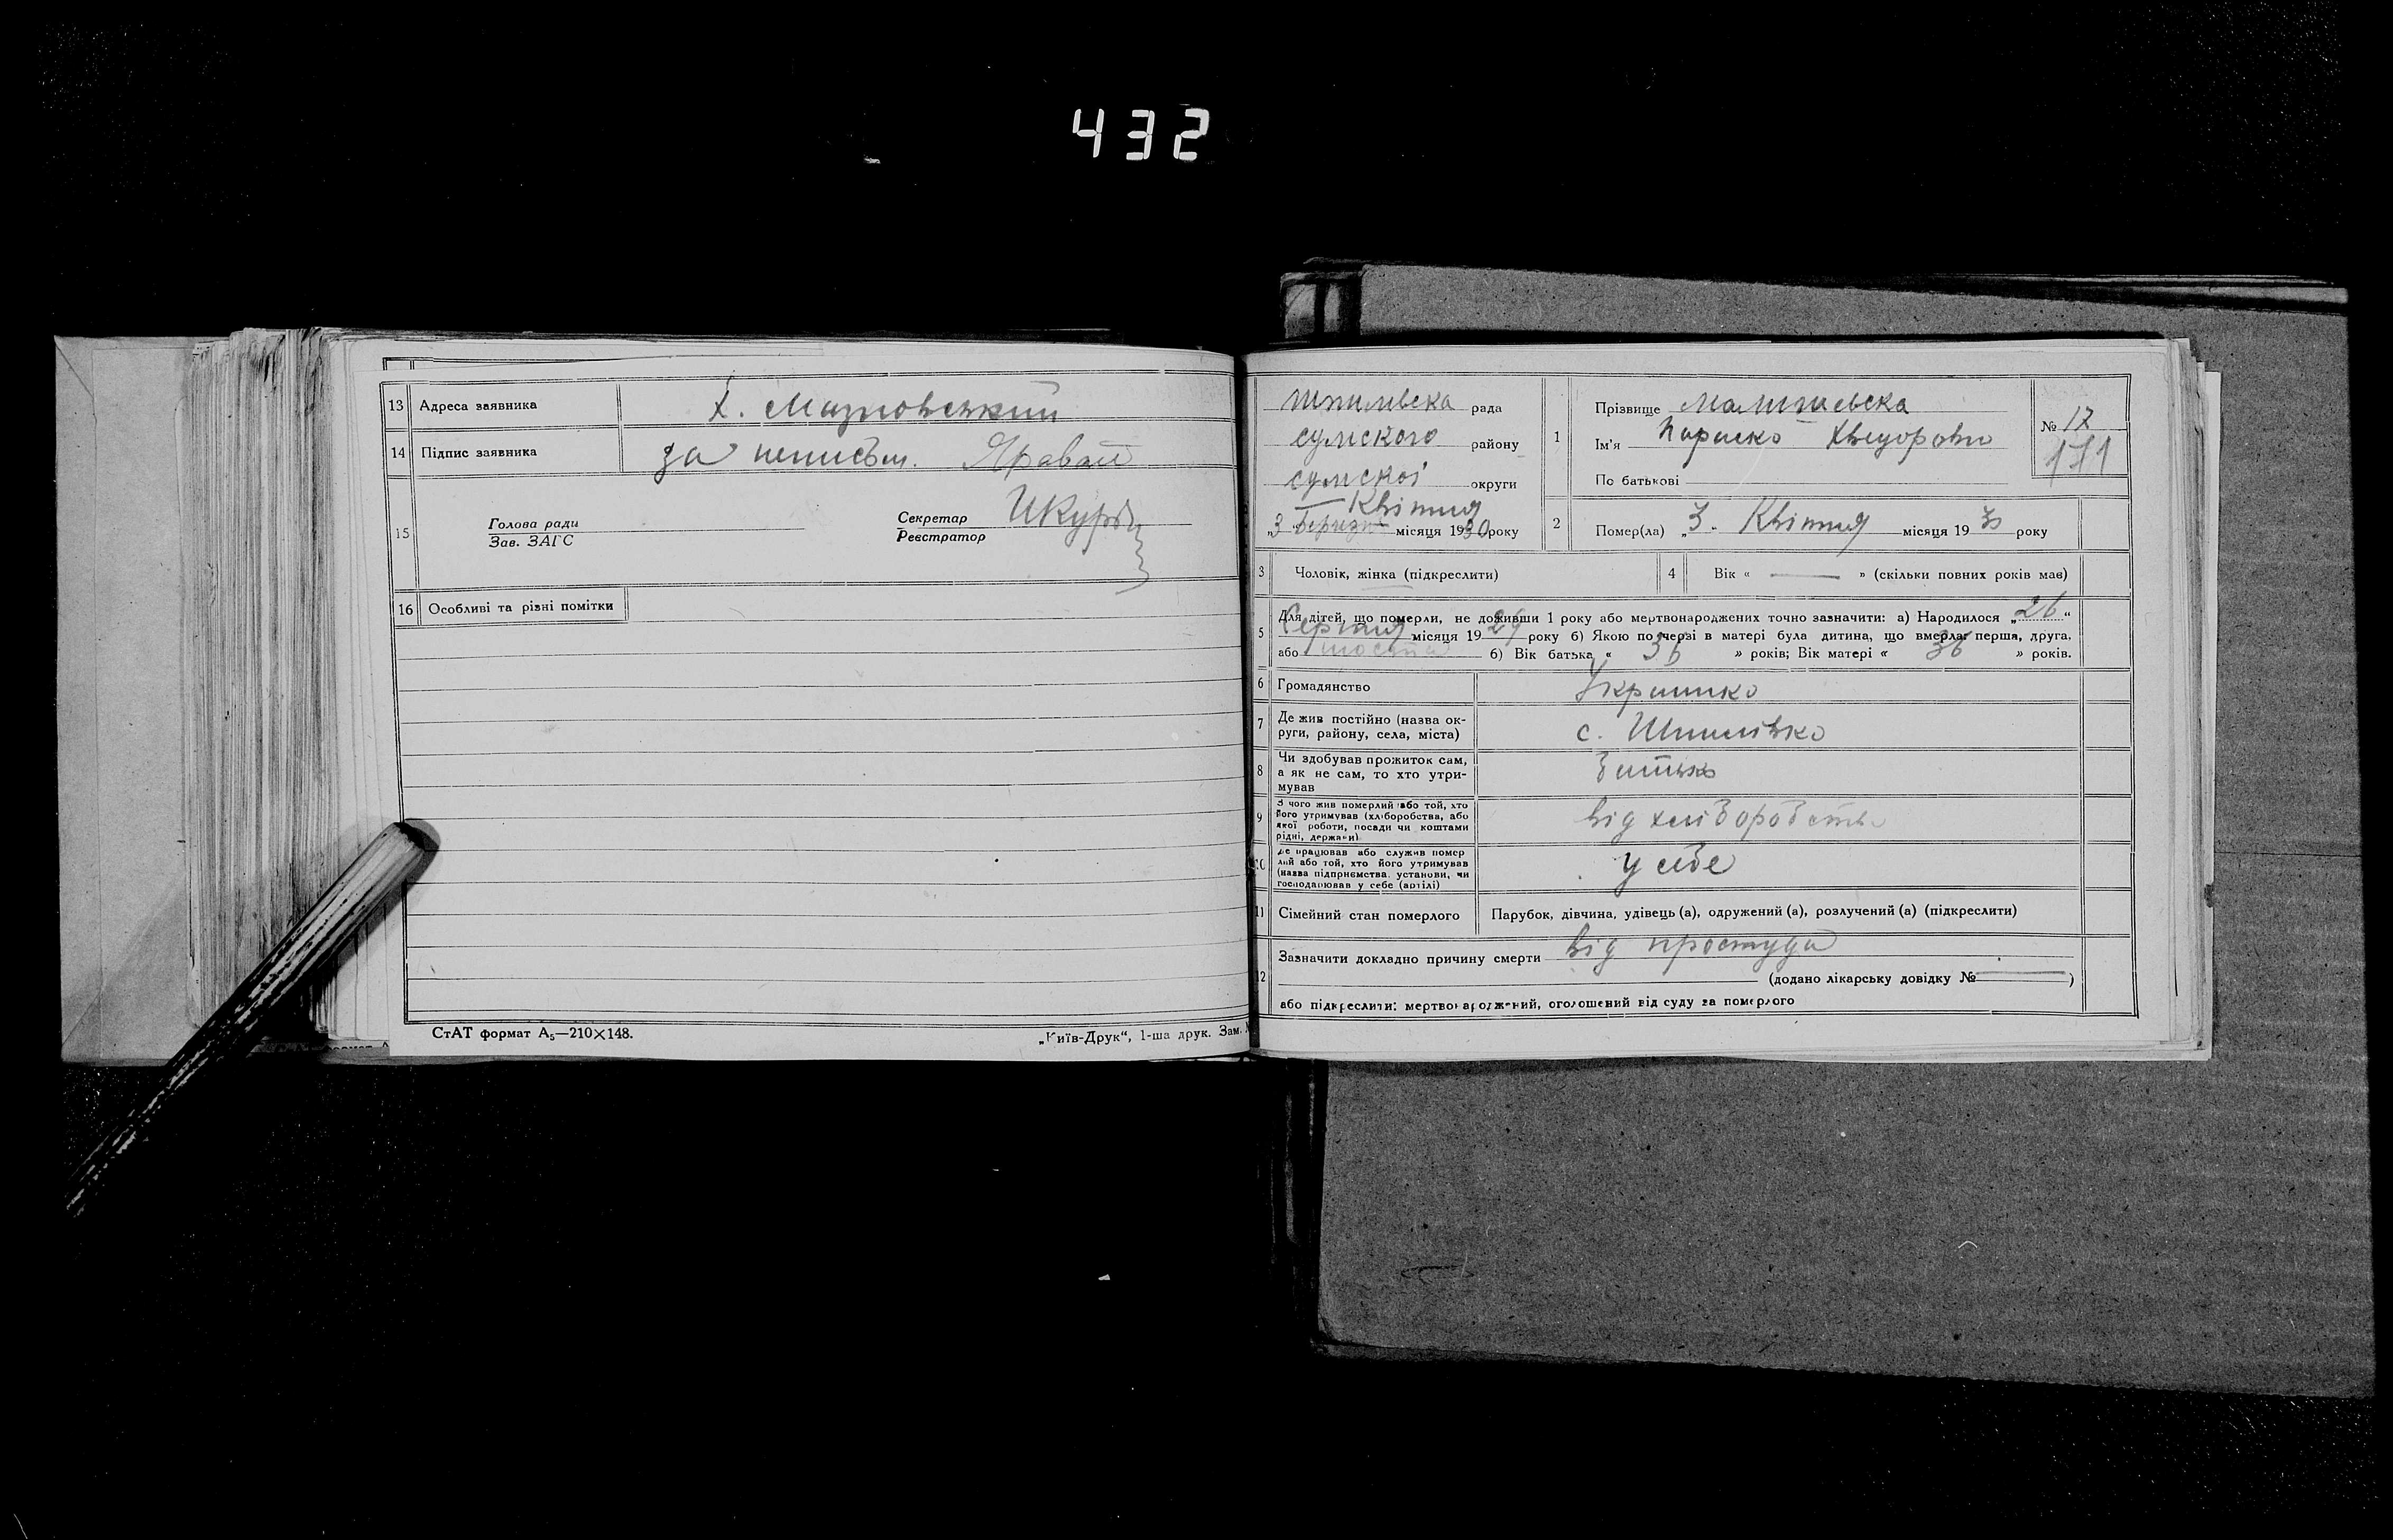 432
13 Адреса заявника Х.
14 Підпис заявника за неписьм.
15 Голова ради
Зав. ЗАГС
Секретар
Реєстратор
16 Особливі та різні помітки
СтАТ формат А₅—210×148.
„Київ-Друк“, 1-ша друк. Зам.
Шпилівська рада
сумского району
сумскоі округи
Квітня
„3 березня місяця 1930 року
1 Прізвище
Ім'я Параска Хведоровна
По батькові
№ 17
171
2 Помер(ла) „3. Квітня місяця 1930 року
3 Чоловік, жінка (підкреслити)
4 Вік « — » (скільки повних років мав)
5 Для дітей, що померли, не доживши 1 року або мертвонароджених точно зазначити: а) Народилося „26“
Серпня місяця 1929 року б) Якою по черзі в матері була дитина, що вмерла: перша, друга,
або шоста б) Вік батька « 36 » років; Вік матері « 36 » років.
6 Громадянство Украинка
7 Де жив постійно (назва округи, району, села, міста) с. Шпилівка
8 Чи здобував прожиток сам, а як не сам, то хто утримував батько
9 З чого жив померлий або той, хто його утримував (хліборобства, або якої роботи, посади чи коштами рідні, держави) від хліборобства
10 Де працював або служив помер лий або той, хто його утримував (назва підприємства, установи, чи господарював у себе (артілі) у себе
11 Сімейний стан померлого Парубок, дівчина, удівець (а), одружений (а), розлучений (а) (підкреслити)
12 Зазначити докладно причину смерти від простуди
(додано лікарську довідку № — )
або підкреслити: мертвонароджений, оголошений від суду за померлого